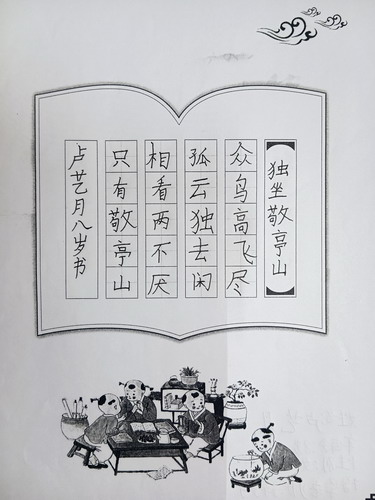 独坐敬亭山
众鸟高飞尽
孤云独去闲
相看两不厌
只有敬亭山
卢艺月八岁书